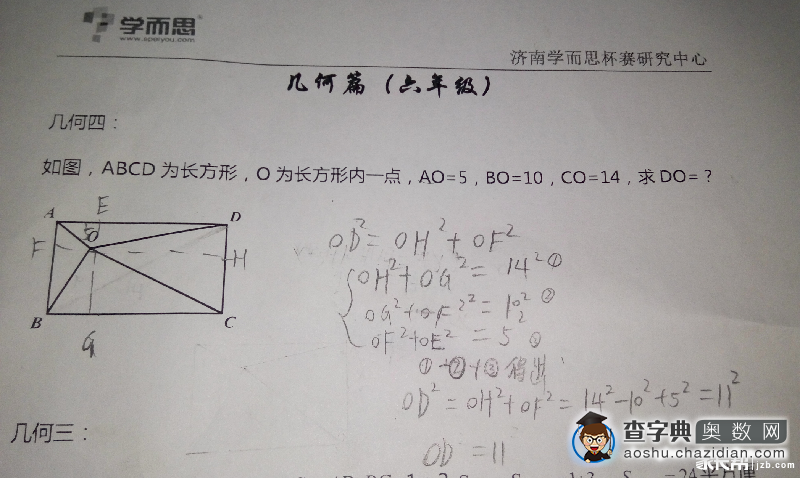 学而思
www.speiyou.com
济南学而思杯赛研究中心
几何篇（六年级）
几何四：
如图，ABCD 为长方形，O 为长方形内一点，AO=5，BO=10，CO=14，求 DO=？
A E D
5
F O H
B G C
OD²= OH²+OF²
OH²+OG²= 14² ①
OG²+OF²= 10² ②
OF²+OE² = 5² ③
①-②+③ 得出:
OD² = OH²+OF² = 14²-10²+5² = 11²
OD = 11
几何三：
查字典 奥数网
aoshu.chazidian.com
jzb.com